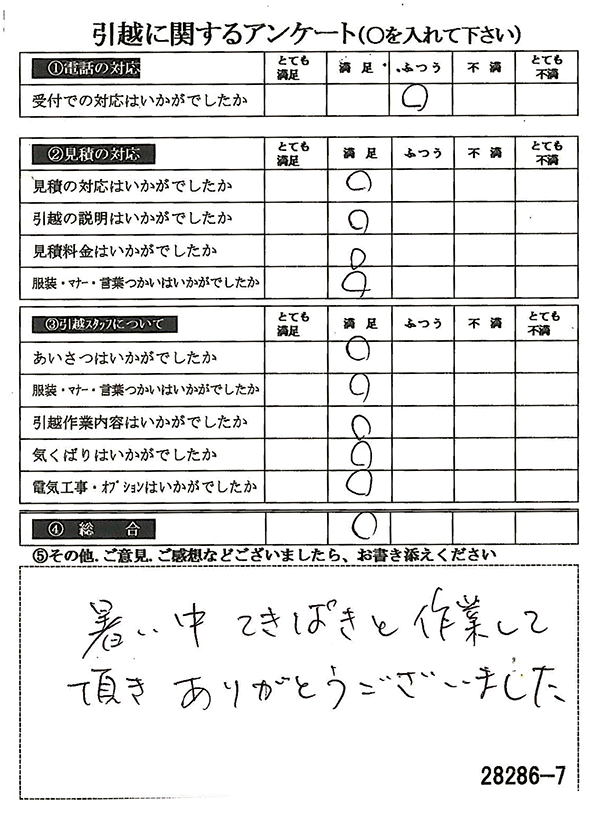 引越に関するアンケート(〇を入れて下さい)
①電話の対応 とても満足 満足 ふつう 不満 とても不満
受付での対応はいかがでしたか 〇
②見積の対応 とても満足 満足 ふつう 不満 とても不満
見積の対応はいかがでしたか 〇
引越の説明はいかがでしたか 〇
見積料金はいかがでしたか 〇
服装・マナー・言葉つかいはいかがでしたか 〇
③引越スタッフについて とても満足 満足 ふつう 不満 とても不満
あいさつはいかがでしたか 〇
服装・マナー・言葉つかいはいかがでしたか 〇
引越作業内容はいかがでしたか 〇
気くばりはいかがでしたか 〇
電気工事・オプションはいかがでしたか 〇
④ 総 合 〇
⑤その他.ご意見.ご感想などございましたら、お書き添えください
暑い中 てきぱきと 作業して
頂き ありがとうございました
28286-7